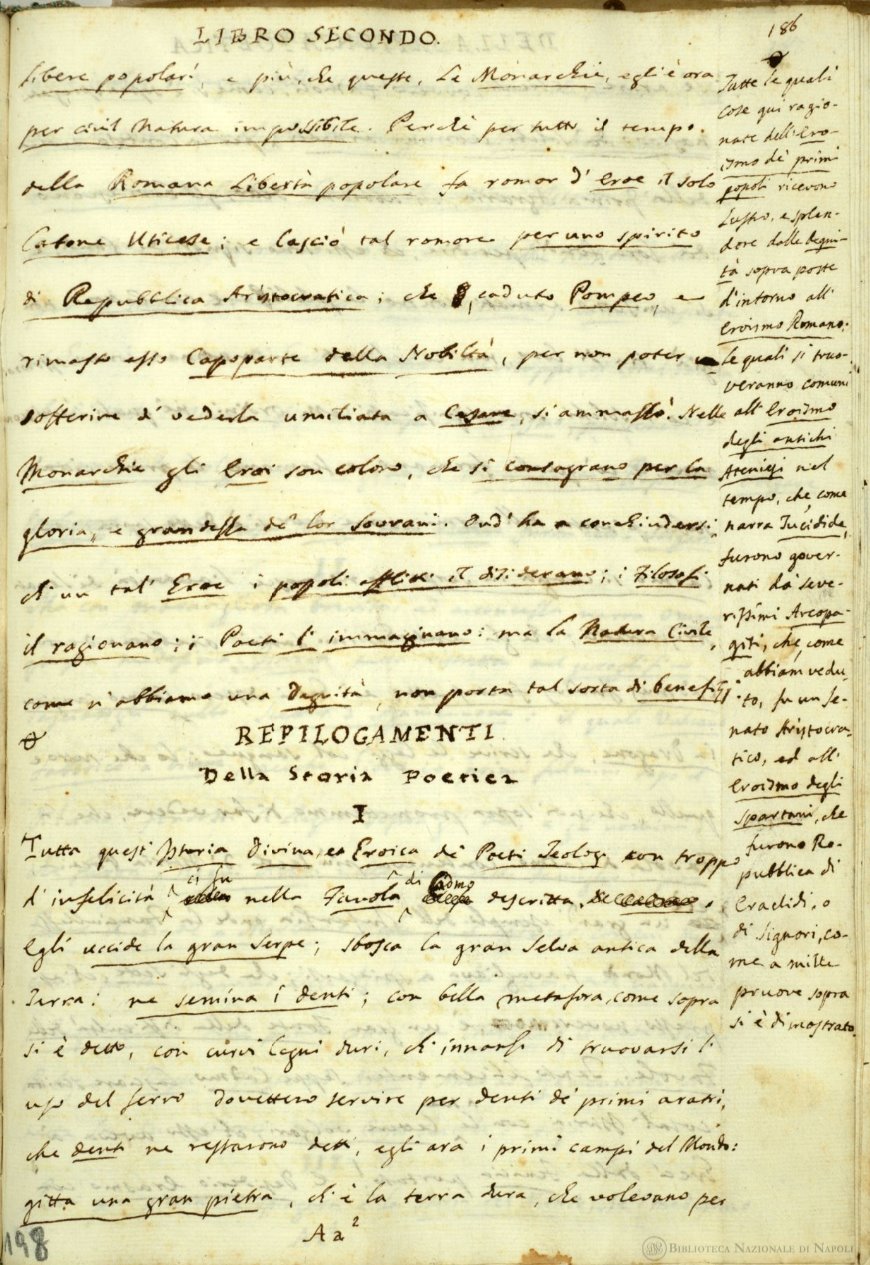 LIBRO SECONDO.
186
libere popolari, e più, che queste, le Monarchie, egli è ora
per civil Natura impossibile. Perchè per tutto il tempo
della Romana Libertà popolare fa romor d' Eroe il solo
Catone Uticese; e lasciò tal romore per uno spirito
di Repubblica Aristocratica; che, caduto Pompeo, e
rimasto esso Capoparte della Nobiltà, per non poter
sofferire di vederla umiliata a Cesare, si ammazzò. Nelle
Monarchie gli Eroi son coloro, che si consagrano per la
gloria, e grandezza de' lor Sovrani. Ond' ha a conchiudersi,
ch' un tal' Eroe i popoli afflitti il disiderano; i Filosofi
il ragionano; i Poeti l' immaginano: ma la Natura Civile,
come n' abbiamo una Degnità, non porta tal sorta di benefizj.
REPILOGAMENTI
Della Storia Poetica
I
Tutta questa Istoria Divina, ed Eroica de' Poeti Teologi con troppo
d' infelicità ci fu nella Favola di Cadmo descritta.
Egli uccide la gran Serpe; sbosca la gran Selva antica della
Terra: ne semina i denti; con bella metafora, come sopra
si è detto, con curvi legni duri, ch' innanzi di truovarsi l'
uso del ferro dovettero servire per denti de' primi aratri,
che denti ne restarono detti, egli ara i primi campi del Mondo:
gitta una gran pietra, ch' è la terra dura, che volevano per
Aa2
198
Tutte le quali
cose qui ragio-
nate dell' Ero-
ismo de' primi
popoli ricevono
lustro, e splen-
dore dalle degni-
tà sopra poste
d'intorno all'
Eroismo Romano:
le quali si truo-
veranno comuni
all' Eroismo
degli antichi
Ateniesi nel
tempo, che, come
narra Tucidide,
furono gover-
nati da' seve-
rissimi Areopa-
giti, che, come
abbiam vedu-
to, fu un Se-
nato Aristocra-
tico, ed all'
Eroismo degli
Spartani, che
furono Re-
pubblica di
Eraclidi, o
di Signori, co-
me a mille
pruove sopra
si è dimostrato
BIBLIOTECA NAZIONALE DI NAPOLI